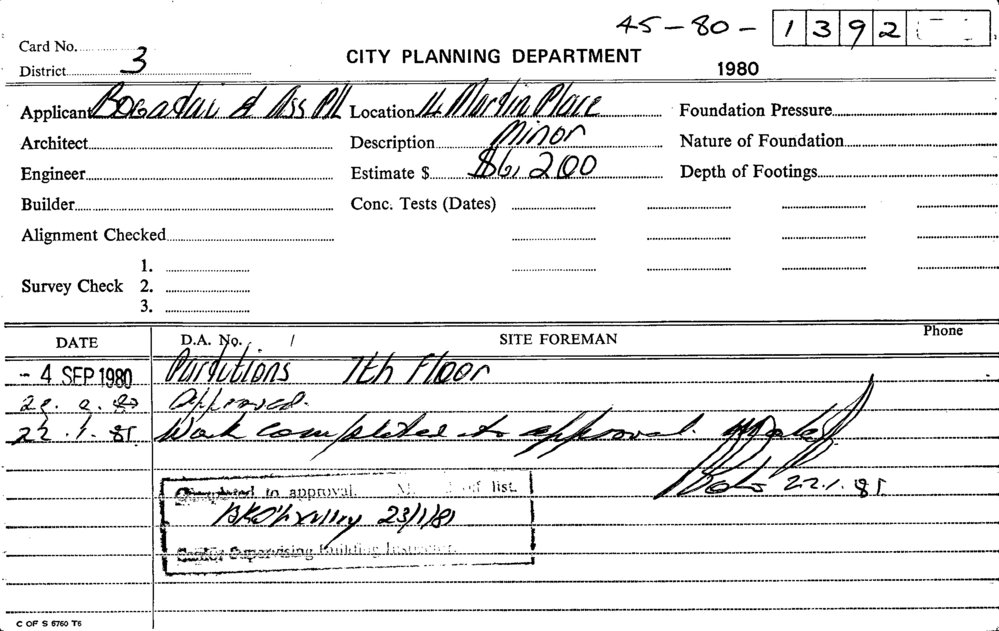 45-80- 1392
Card No.
District 3
CITY PLANNING DEPARTMENT
1980
Applicant Bogadai & Ass P/L Location Martin Place Foundation Pressure
Architect Description Minor Nature of Foundation
Engineer Estimate $ $6,200 Depth of Footings
Builder Conc. Tests (Dates)
Alignment Checked
1.
Survey Check 2.
3.
DATE D.A. No. / SITE FOREMAN Phone
- 4 SEP 1980 Partitions 7th Floor
Approved.
22.1.81. Work completed to approval.
22.1.81.
Completed to approval. of list.
23/1/81
Supervising Building Inspector.
C OF S 6760 T6